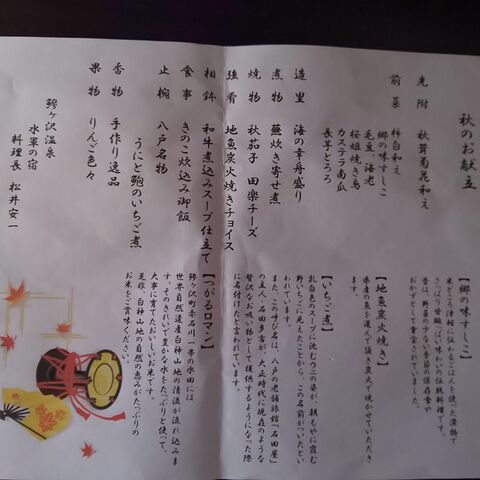 秋のお献立
先附 秋茸菊花和え
前菜 柿白和え
郷の味すしこ
毛豆、海老
桜姫焼き鳥
カステラ南瓜
長芋とろろ
造里 海の幸舟盛り
煮物 蕪炊き寄せ煮
焼物 秋茄子 田楽チーズ
強肴 地魚炭火焼きチョイス
相鉢 和牛煮込みスープ仕立て
食事 きのこ炊込み御飯
止椀 八戸名物
うにと鮑のいちご煮
香物 手作り逸品
果物 りんご色々
鰺ヶ沢温泉
水軍の宿
料理長 松井安一
【郷の味すしこ】
米どころ津軽に伝わるごはんを使った漬物で
さっぱり甘酸っぱい味わいの伝統料理です。
昔は、野菜の少ない季節の保存食や
おかずとして重宝されていました。
【地魚炭火焼き】
県産の魚を選んで頂き炭火で焼かせていただき
ます。
【いちご煮】
乳白色のスープに沈むウニの姿が、朝もやに霞む
野いちごに見えたことから、この名前がついたとい
われています。
また、この呼び名は、八戸の老舗旅館「石田屋」
の主人、石田多吉が、大正時代に現在のような
贅沢なお吸い物として提供するようになった際
に名付けたと言われています。
【つがるロマン】
鰺ヶ沢町赤石川一帯の水田には
世界自然遺産白神山地の清流が流れ込みま
す。そのきれいで豊かな水をたっぷりと使って、
大事に育てたおいしいお米です。
是非、白神山地の自然の恵みがたっぷりの
お米をご賞味ください。